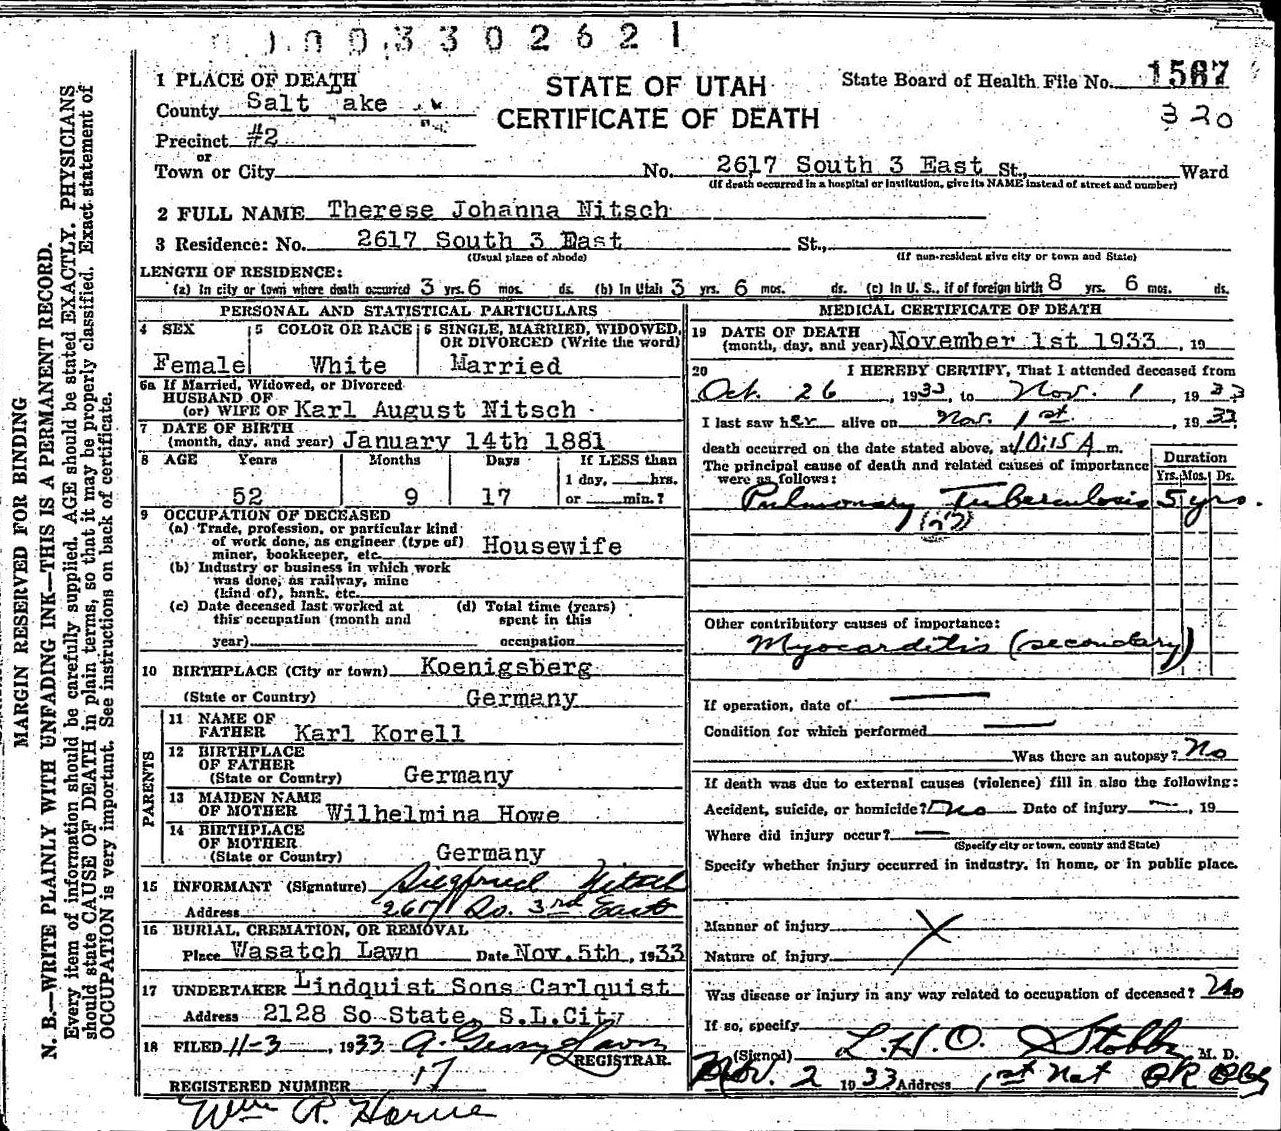 0003302621
1 PLACE OF DEATH
STATE OF UTAH
CERTIFICATE OF DEATH
State Board of Health File No. 1567
320
County Salt Lake
Precinct #2
or
Town or City No. 2617 South 3 East St., Ward
(If death occurred in a hospital or institution, give its NAME instead of street and number)
2 FULL NAME Therese Johanna Nitsch
3 Residence: No. 2617 South 3 East St.,
(Usual place of abode) (If non-resident give city or town and State)
LENGTH OF RESIDENCE:
(a) In city or town where death occurred 3 yrs. 6 mos. ds. (b) In Utah 3 yrs. 6 mos. ds. (c) In U. S., if of foreign birth 8 yrs. 6 mos. ds.
PERSONAL AND STATISTICAL PARTICULARS
4 SEX Female
5 COLOR OR RACE White
6 SINGLE, MARRIED, WIDOWED, OR DIVORCED (Write the word) Married
6a If Married, Widowed, or Divorced
HUSBAND OF
(or) WIFE OF Karl August Nitsch
7 DATE OF BIRTH
(month, day, and year) January 14th 1881
8 AGE Years Months Days If LESS than
1 day, hrs.
52 9 17 or min.?
9 OCCUPATION OF DECEASED
(a) Trade, profession, or particular kind
of work done, as engineer (type of)
miner, bookkeeper, etc. Housewife
(b) Industry or business in which work
was done, as railway, mine
(kind of), bank, etc.
(c) Date deceased last worked at
this occupation (month and
year)
(d) Total time (years)
spent in this
occupation
10 BIRTHPLACE (City or town) Koenigsberg
(State or Country) Germany
PARENTS
11 NAME OF
FATHER Karl Korell
12 BIRTHPLACE
OF FATHER
(State or Country) Germany
13 MAIDEN NAME
OF MOTHER Wilhelmina Howe
14 BIRTHPLACE
OF MOTHER
(State or Country) Germany
15 INFORMANT (Signature) Siegfried Nitsch
Address 2617 So. 3rd East
16 BURIAL, CREMATION, OR REMOVAL
Place Wasatch Lawn Date Nov. 5th, 1933
17 UNDERTAKER Lindquist Sons Carlquist
Address 2128 So State, S.L.City
18 FILED 11-3, 1933
REGISTRAR.
REGISTERED NUMBER 17
Wm R. Horne
MEDICAL CERTIFICATE OF DEATH
19 DATE OF DEATH
(month, day, and year) November 1st 1933, 19
20 I HEREBY CERTIFY, That I attended deceased from
Oct. 26, 1933, to Nov. 1, 1933
I last saw her alive on Nov. 1st, 1933,
death occurred on the date stated above, at 10:15 A m.
The principal cause of death and related causes of importance
were as follows:
Duration
Yrs. Mos. Ds.
Pulmonary Tuberculosis 5 yrs.
(23)
Other contributory causes of importance:
Myocarditis (secondary)
If operation, date of —
Condition for which performed —
Was there an autopsy? No
If death was due to external causes (violence) fill in also the following:
Accident, suicide, or homicide? No Date of injury —, 19
Where did injury occur? —
(Specify city or town, county and State)
Specify whether injury occurred in industry, in home, or in public place.
Manner of injury
Nature of injury
Was disease or injury in any way related to occupation of deceased? No
If so, specify
(Signed) L. H. O. Stobbe M. D.
Nov. 2 1933 Address 1st Nat
MARGIN RESERVED FOR BINDING
N. B.—WRITE PLAINLY WITH UNFADING INK—THIS IS A PERMANENT RECORD.
Every item of information should be carefully supplied. AGE should be stated EXACTLY. PHYSICIANS
should state CAUSE OF DEATH in plain terms, so that it may be properly classified. Exact statement of
OCCUPATION is very important. See instructions on back of certificate.